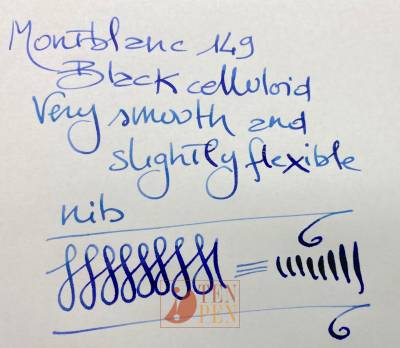 Montblanc 149
Black celluloid
Very smooth and
slightly flexible
nib
TEN
PEN